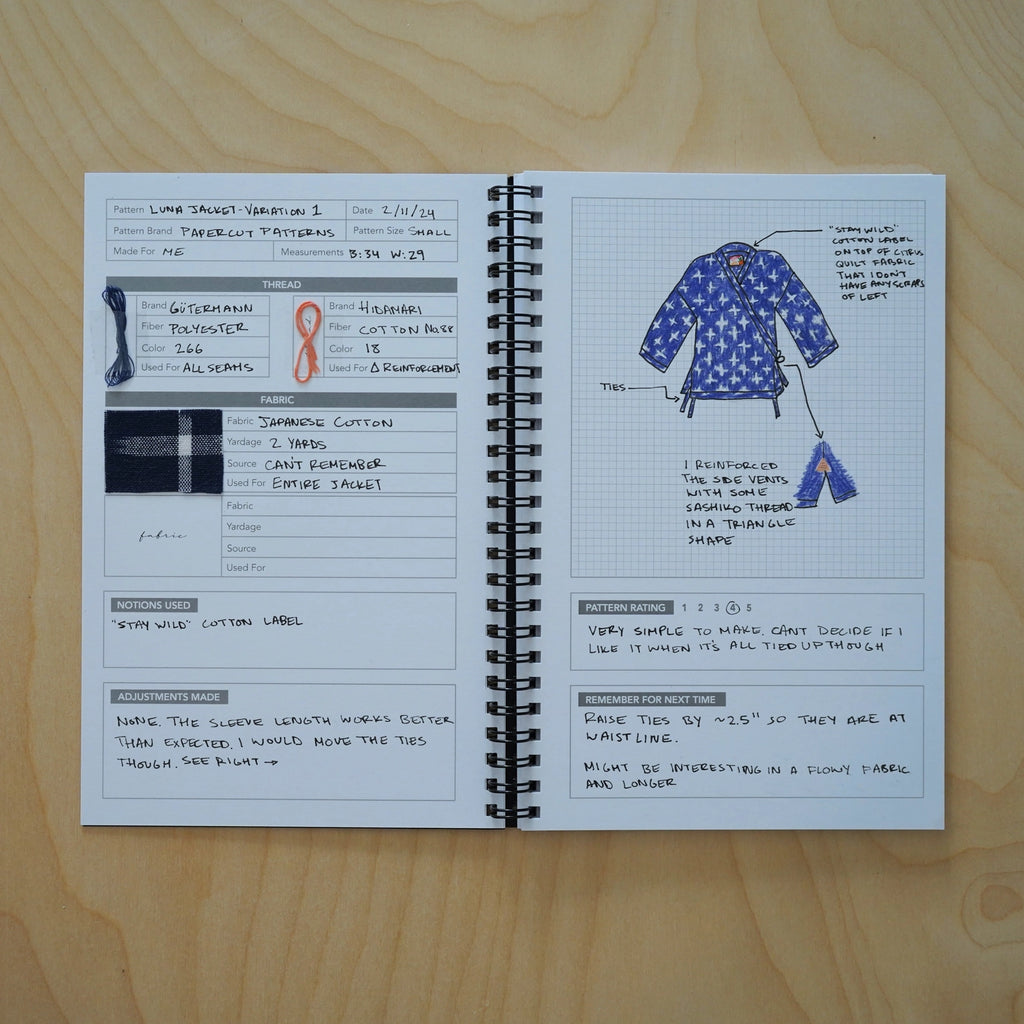 Pattern LUNA JACKET-VARIATION 1 Date 2/11/24
Pattern Brand PAPERCUT PATTERNS Pattern Size SMALL
Made For ME Measurements B:34 W:29
THREAD
Brand GÜTERMANN
Fiber POLYESTER
Color 266
Used For ALL SEAMS
Brand HIDAMARI
Fiber COTTON No.88
Color 18
Used For Δ REINFORCEMENT
FABRIC
Fabric JAPANESE COTTON
Yardage 2 YARDS
Source CAN'T REMEMBER
Used For ENTIRE JACKET
fabric
Fabric
Yardage
Source
Used For
NOTIONS USED
"STAY WILD" COTTON LABEL
ADJUSTMENTS MADE
NONE. THE SLEEVE LENGTH WORKS BETTER
THAN EXPECTED. I WOULD MOVE THE TIES
THOUGH. SEE RIGHT →
"STAY WILD"
COTTON LABEL
ON TOP OF CITRUS
QUILT FABRIC
THAT I DON'T
HAVE ANY SCRAPS
OF LEFT
TIES
I REINFORCED
THE SIDE VENTS
WITH SOME
SASHIKO THREAD
IN A TRIANGLE
SHAPE
PATTERN RATING 1 2 3 4 5
VERY SIMPLE TO MAKE. CANT DECIDE IF I
LIKE IT WHEN IT'S ALL TIED UP THOUGH
REMEMBER FOR NEXT TIME
RAISE TIES BY ~2.5" SO THEY ARE AT
WAISTLINE.
MIGHT BE INTERESTING IN A FLOWY FABRIC
AND LONGER